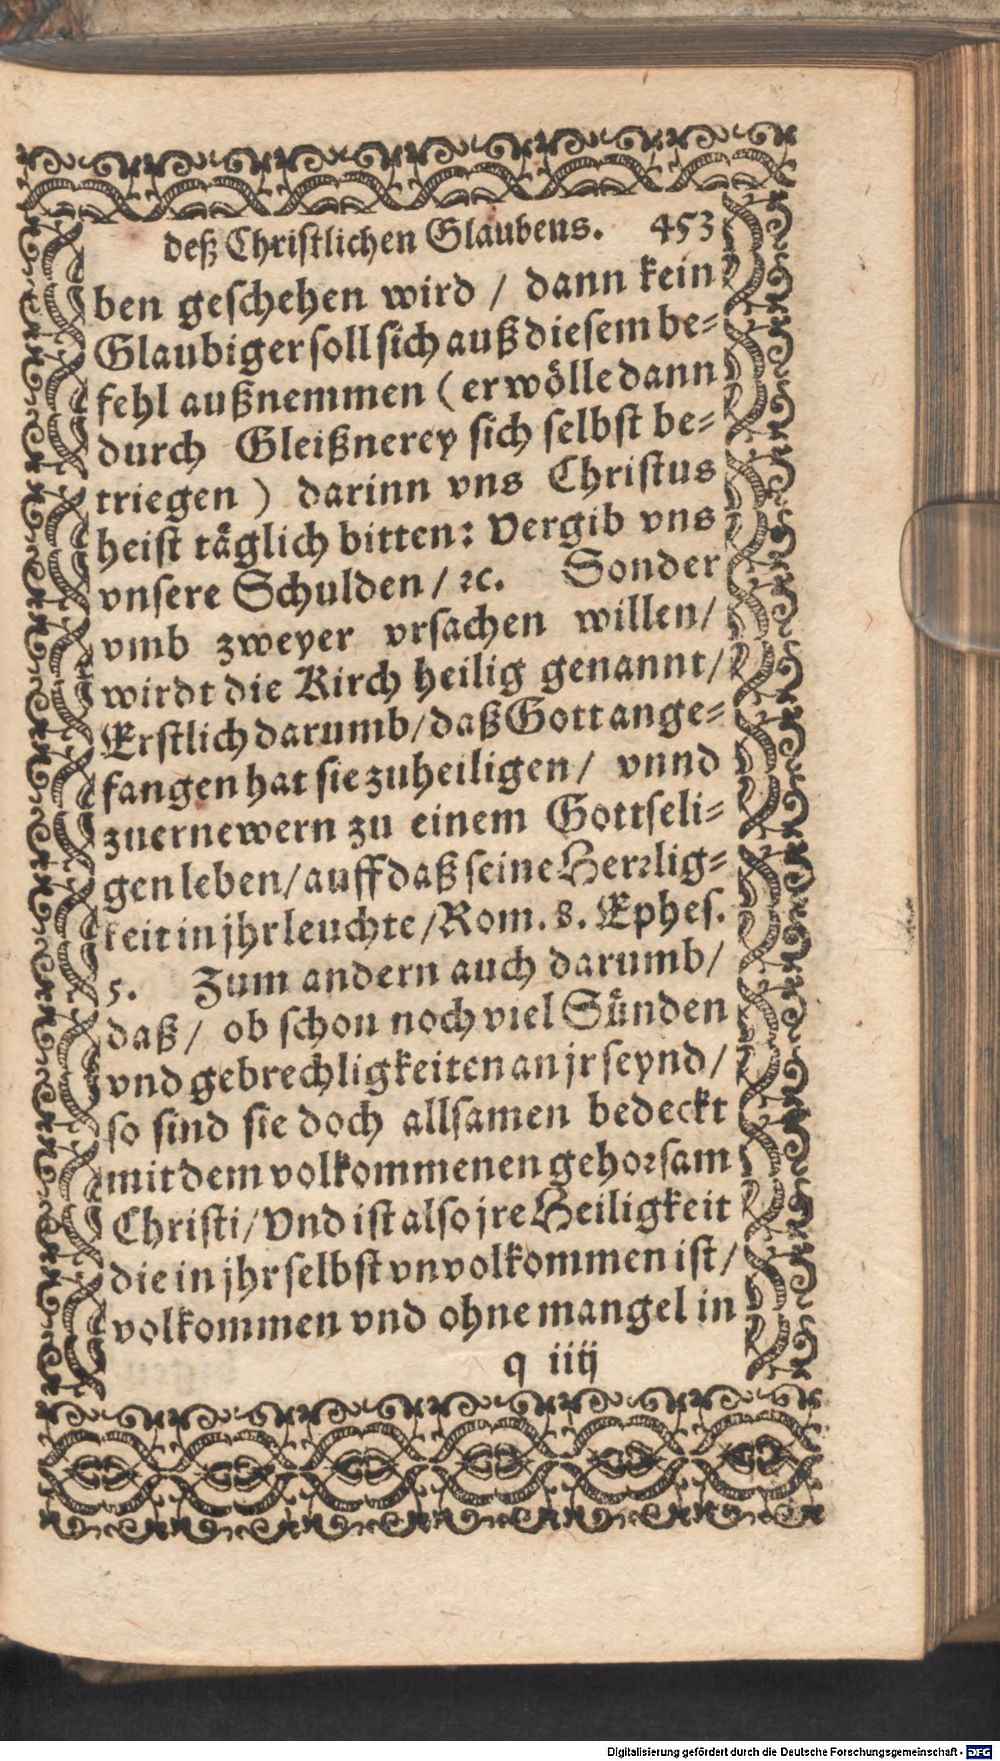 deß Christlichen Glaubens. 453
ben geschehen wird / dann kein
Glaubiger soll sich auß diesem be-
fehl außnemmen ( er wölle dann
durch Gleißnerey sich selbst be-
triegen ) darinn vns Christus
heist täglich bitten: Vergib vns
vnsere Schulden / ꝛc. Sonder
vmb zweyer vrsachen willen /
wirdt die Kirch heilig genannt /
Erstlich darumb / daß Gott ange-
fangen hat sie zuheiligen / vnnd
zuernewern zu einem Gottseli-
gen leben / auff daß seine Herꝛlig-
keit in jhr leuchte / Rom. 8. Ephes.
5. Zum andern auch darumb /
daß / ob schon noch viel Sünden
vnd gebrechligkeiten an jr seynd /
so sind sie doch allsamen bedeckt
mit dem volkommenen gehoꝛsam
Christi / Vnd ist also jre Heiligkeit
die in jhr selbst vnvolkommen ist /
volkommen vnd ohne mangel in
q iiij
Digitalisierung gefördert durch die Deutsche Forschungsgemeinschaft - DFG